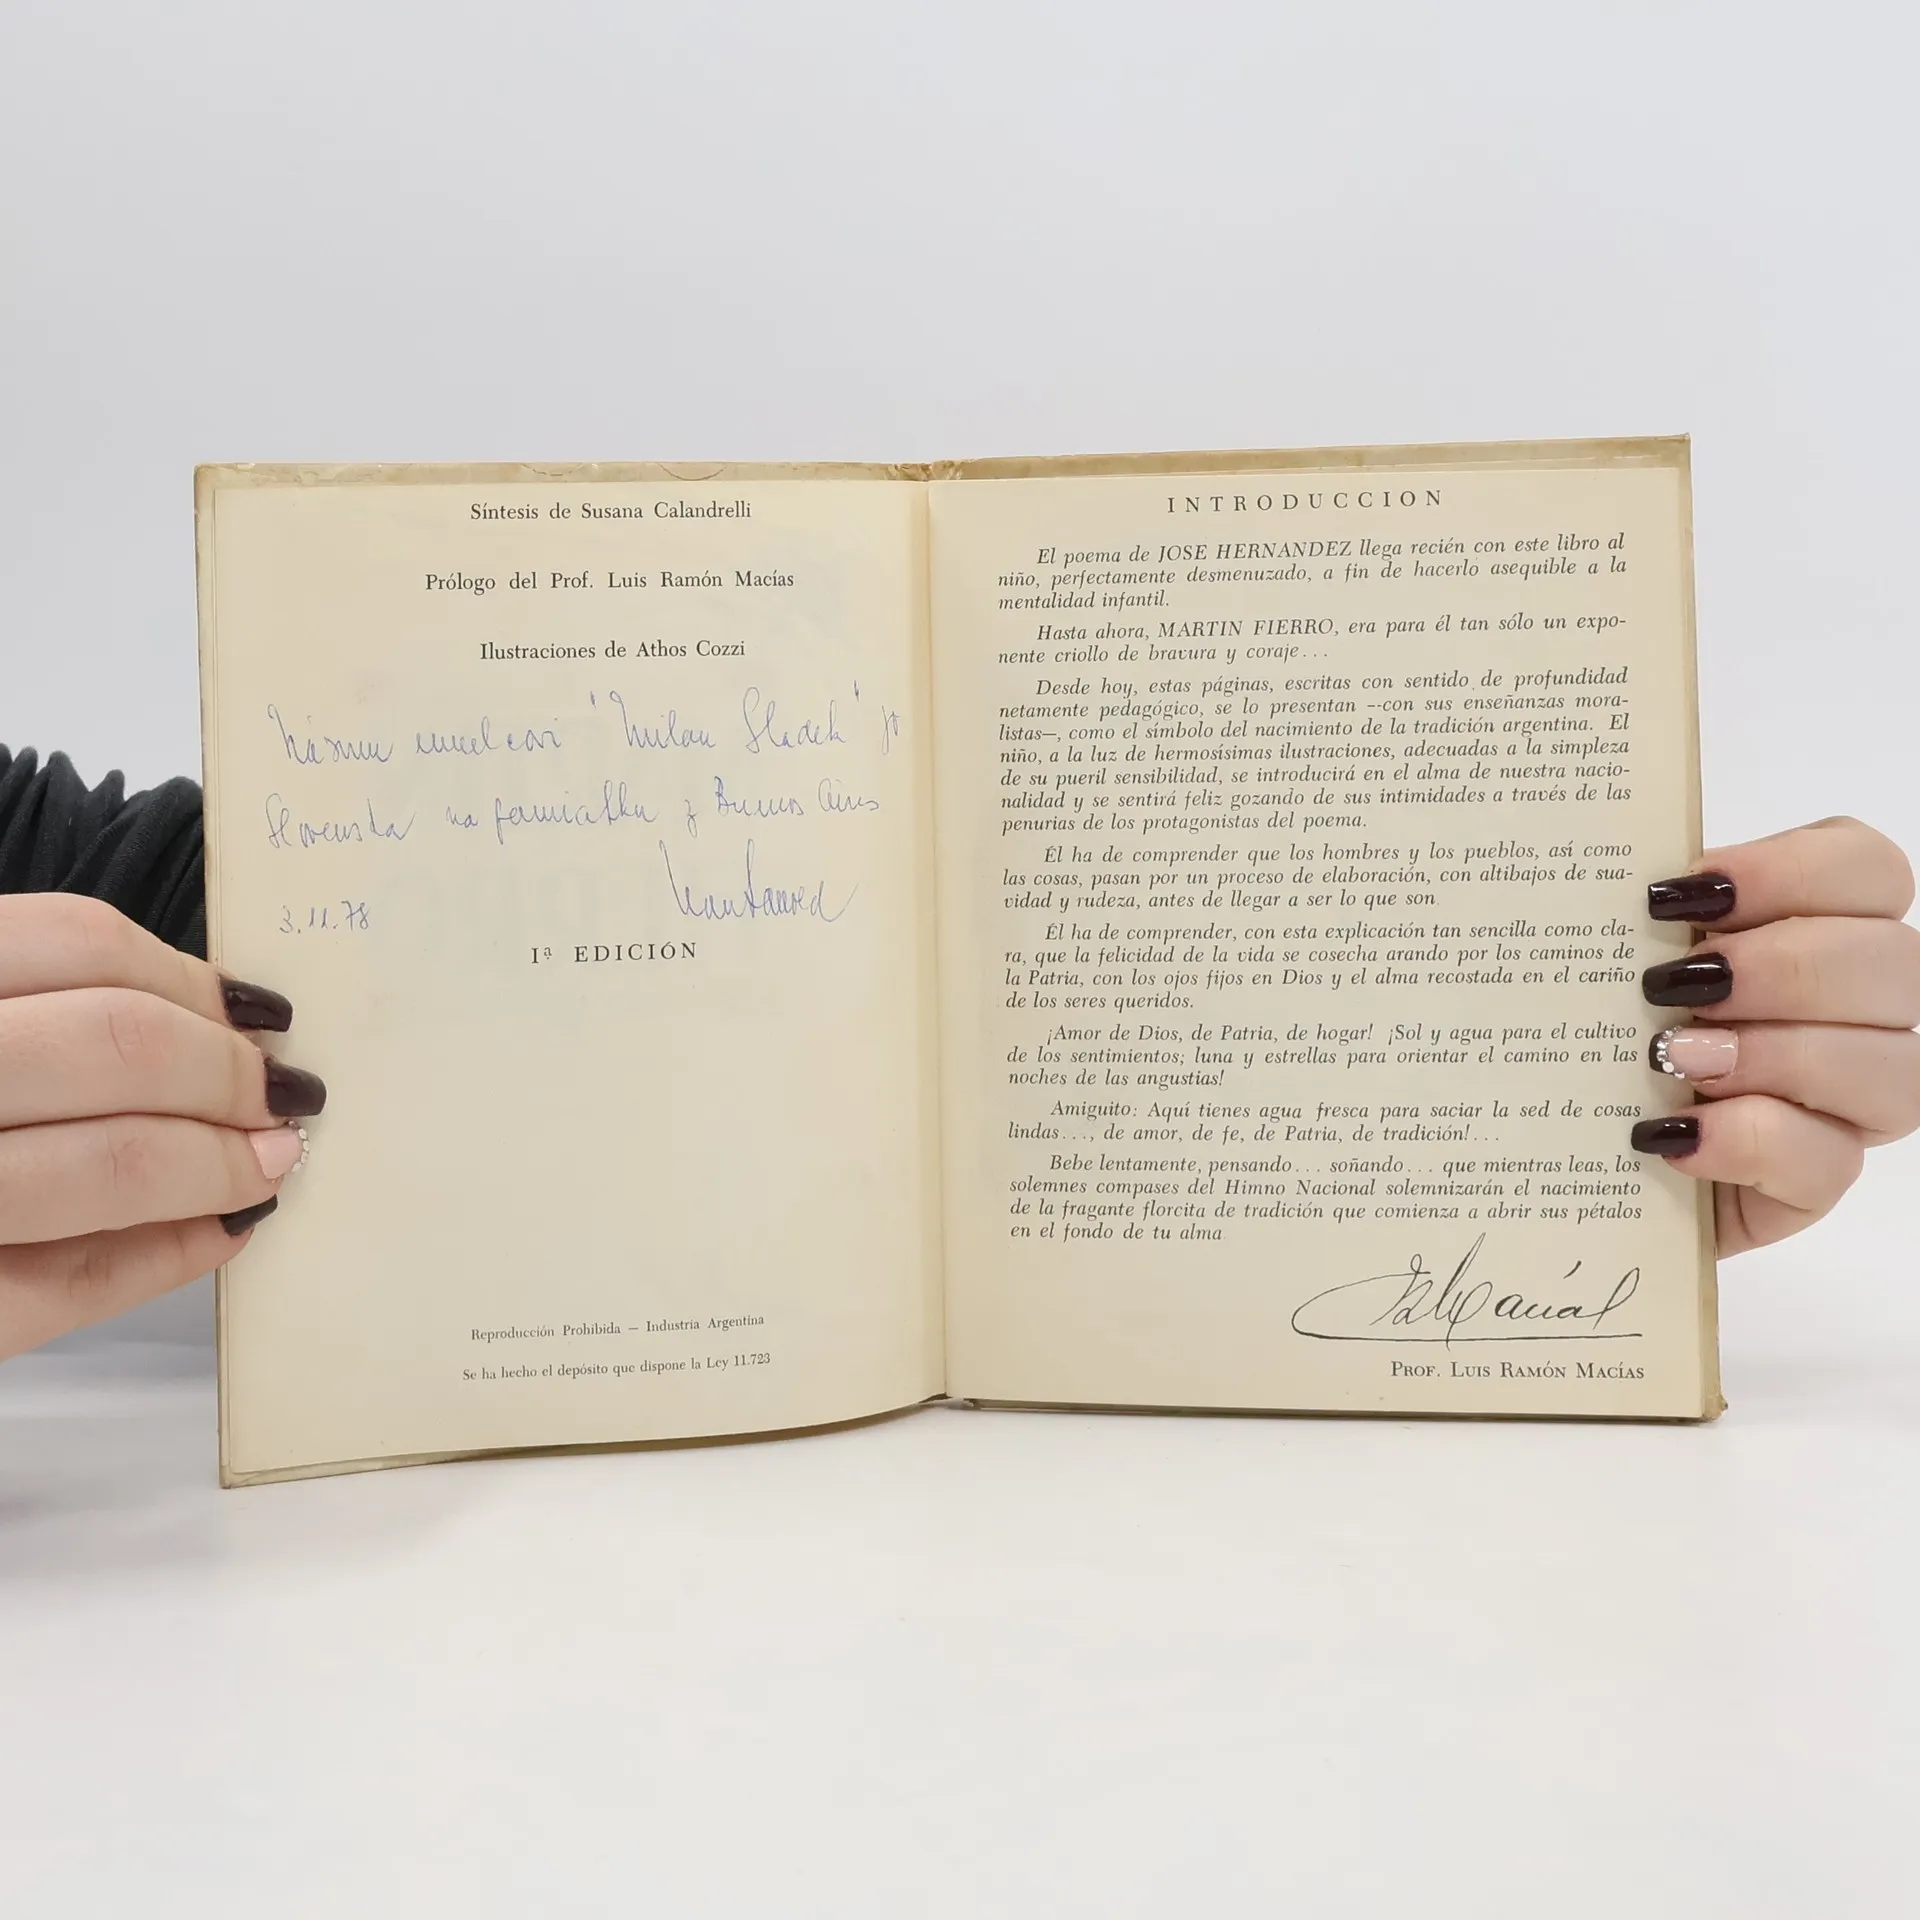 Síntesis de Susana Calandrelli
Prólogo del Prof. Luis Ramón Macías
Ilustraciones de Athos Cozzi
"Milan Sladek" zo
Slovenska na pamiatku z Buenos Aires
3.11.78
Iª EDICIÓN
Reproducción Prohibida — Industria Argentina
Se ha hecho el depósito que dispone la Ley 11.723
INTRODUCCION
El poema de JOSE HERNANDEZ llega recién con este libro al
niño, perfectamente desmenuzado, a fin de hacerlo asequible a la
mentalidad infantil.
Hasta ahora, MARTIN FIERRO, era para él tan sólo un expo-
nente criollo de bravura y coraje...
Desde hoy, estas páginas, escritas con sentido de profundidad
netamente pedagógico, se lo presentan --con sus enseñanzas mora-
listas—, como el símbolo del nacimiento de la tradición argentina. El
niño, a la luz de hermosísimas ilustraciones, adecuadas a la simpleza
de su pueril sensibilidad, se introducirá en el alma de nuestra nacio-
nalidad y se sentirá feliz gozando de sus intimidades a través de las
penurias de los protagonistas del poema.
Él ha de comprender que los hombres y los pueblos, así como
las cosas, pasan por un proceso de elaboración, con altibajos de sua-
vidad y rudeza, antes de llegar a ser lo que son.
Él ha de comprender, con esta explicación tan sencilla como cla-
ra, que la felicidad de la vida se cosecha arando por los caminos de
la Patria, con los ojos fijos en Dios y el alma recostada en el cariño
de los seres queridos.
¡Amor de Dios, de Patria, de hogar! ¡Sol y agua para el cultivo
de los sentimientos; luna y estrellas para orientar el camino en las
noches de las angustias!
Amiguito: Aquí tienes agua fresca para saciar la sed de cosas
lindas..., de amor, de fe, de Patria, de tradición!...
Bebe lentamente, pensando... soñando... que mientras leas, los
solemnes compases del Himno Nacional solemnizarán el nacimiento
de la fragante florcita de tradición que comienza a abrir sus pétalos
en el fondo de tu alma.
PROF. LUIS RAMÓN MACÍAS